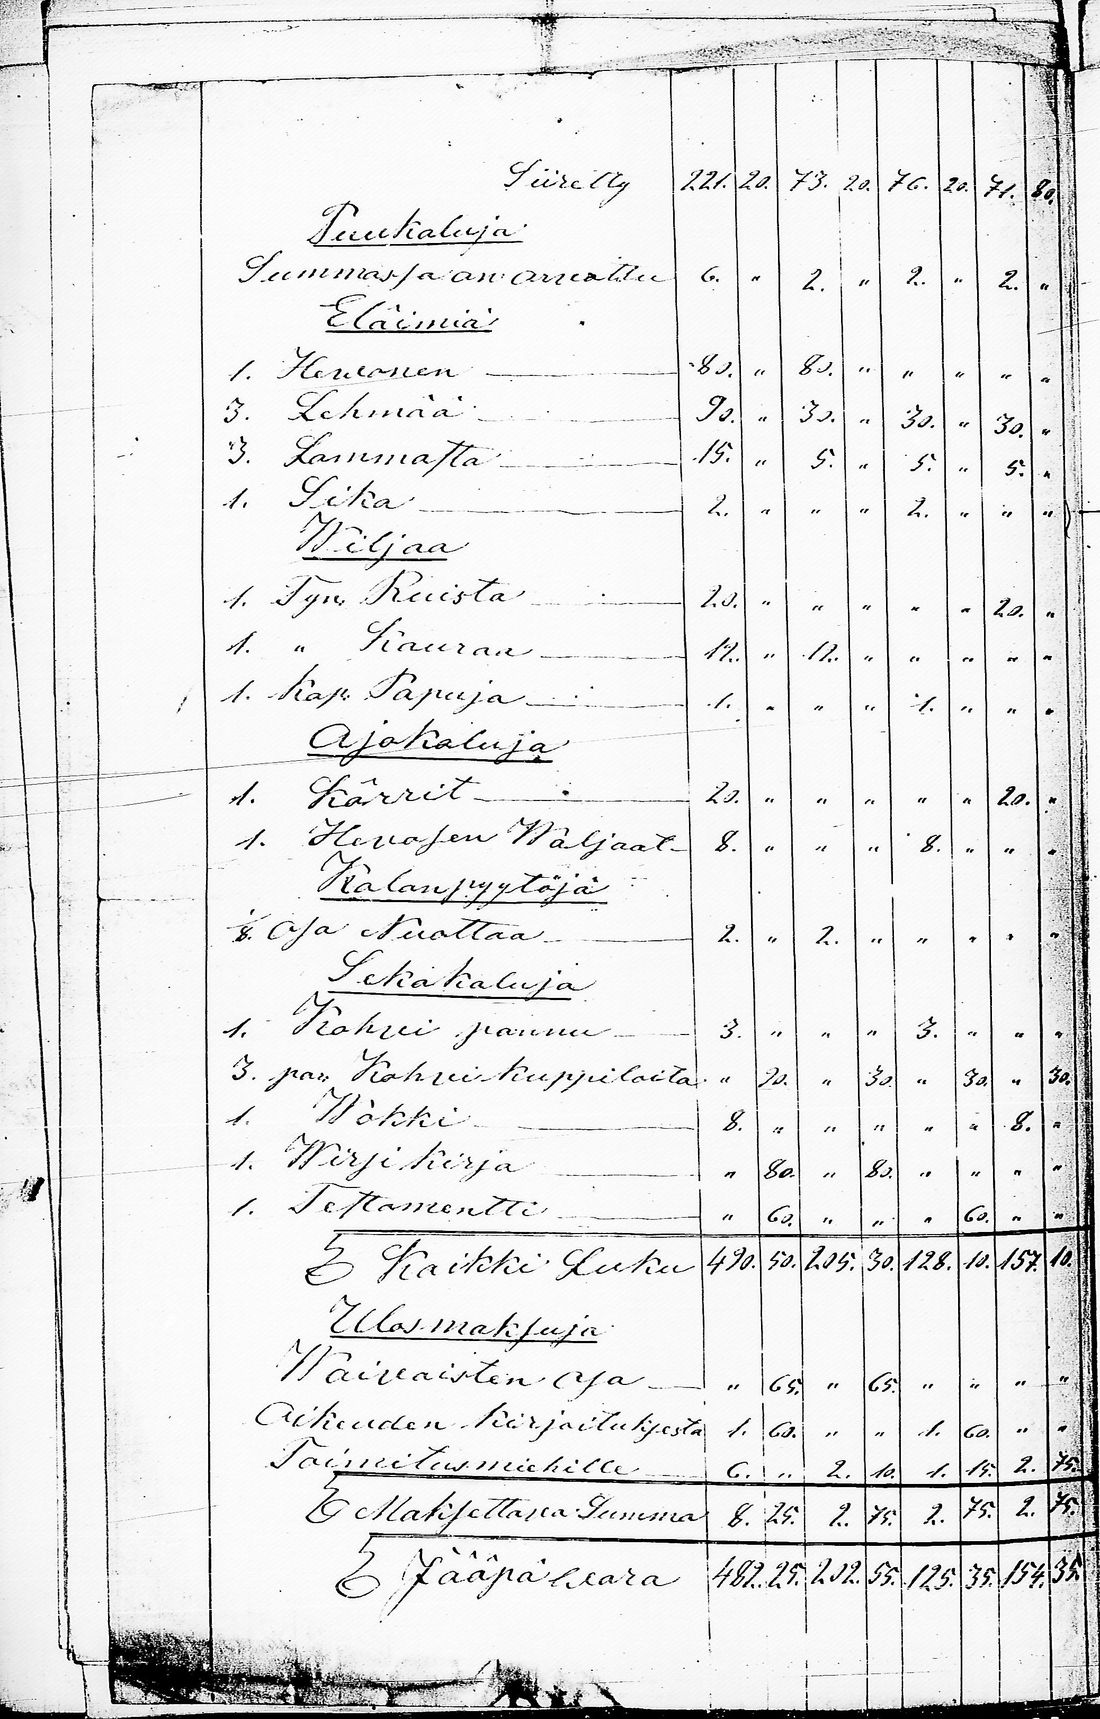 Siiretty 221. 20. 73. 20. 76. 20. 71. 80.
Puukaluja
Summassa on arvattu 6. " 2. " 2. " 2. "
Eläimiä
1. Hevonen 80. " 80. " " " " "
3. Lehmää 90. " 30. " 30. " 30. "
3. Lammasta 15. " 5. " 5. " 5. "
1. Sika 2. " " " 2. " " "
Wiljaa
1. Tyn. Ruista 20. " " " " " 20. "
1. " Kauraa 12. " 12. " " " " "
1. Kap. Papuja 1. " " " 1. " " "
Ajokaluja
1. Kärrit 20. " " " " " 20. "
1. Hevosen Wäljaat 8. " " " 8. " " "
Kalanpyytöjä
1/8. osa Nuottaa 2. " 2. " " " " "
Sekakaluja
1. Kohvi pannu 3. " " " 3. " " "
3. par Kohvi kuppiloita " 90. " 30. " 30. " 30.
1. Wokki 8. " " " " " 8. "
1. Wirsi kirja " 80. " 80. " " " "
1. Testamentti " 60. " " " 60. " "
Kaikki Luku 490. 50. 205. 30. 128. 10. 157. 10.
Ulosmaksuja
Waivaisten osa " 65. " 65. " " " "
Oikeuden kirjoituksesta 1. 60. " " 1. 60. " "
Toimitusmiehille 6. " 2. 10. 1. 15. 2. 75.
Maksettava Summa 8. 25. 2. 75. 2. 75. 2. 75.
Jääpä vara 482. 25. 202. 55. 125. 35. 154. 35.